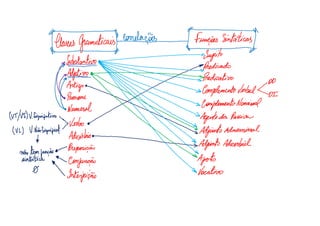 Classes Gramaticais
correlações
Funções Sintáticas
Substantivo
Adjetivo
Artigo
Pronome
Numeral
Verbo
Advérbio
Preposição
Conjunção
Interjeição
(VL) V. Não
não tem função
sintática
Ø
Sujeito
Predicado
Predicativo
Complemento Verbal
OD
OI
Complemento Nominal
Agente da Passiva
Adjunto Adnominal
Adjunto Adverbial
Aposto
Vocativo